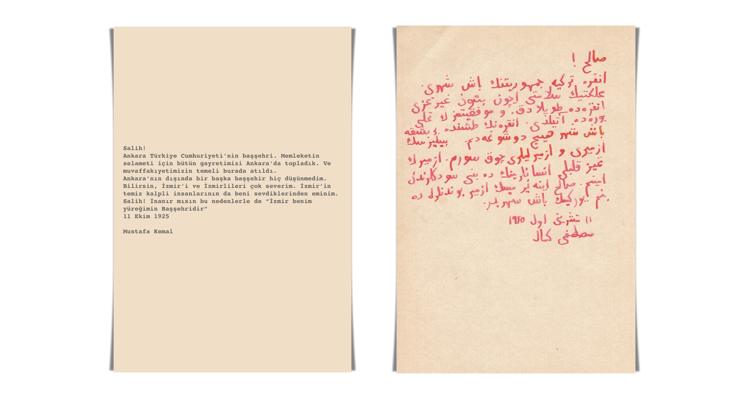 Salih!
Ankara Türkiye Cumhuriyeti'nin başşehri. Memleketin
selameti için bütün gayretimizi Ankara'da topladık. Ve
muvaffakıyetimizin temeli burada atıldı.
Ankara'nın dışında bir başka başşehir hiç düşünmedim.
Bilirsin, İzmir'i ve İzmirlileri çok severim. İzmir'in
temiz kalpli insanlarının da beni sevdiklerinden eminim.
Salih! İnanır mısın bu nedenlerle de "İzmir benim
yüreğimin Başşehridir"
11 Ekim 1925
Mustafa Kemal
صالح !
انقره تركيه جمهوريتنك باش شهرى
سلامتى ايچون بتون
انقره ده طوپلادق و موفقيتمزك
بوراده آتيلدى انقره نك
باش شهر هيچ دوشونمه دم
ازميرى و ازميرليلرى چوق سورم ازميرك
قلبلى انسانلرينك ده بنى
صالح ازمير
باش شهريدر
١١ تشرين اول
مصطفى كمال